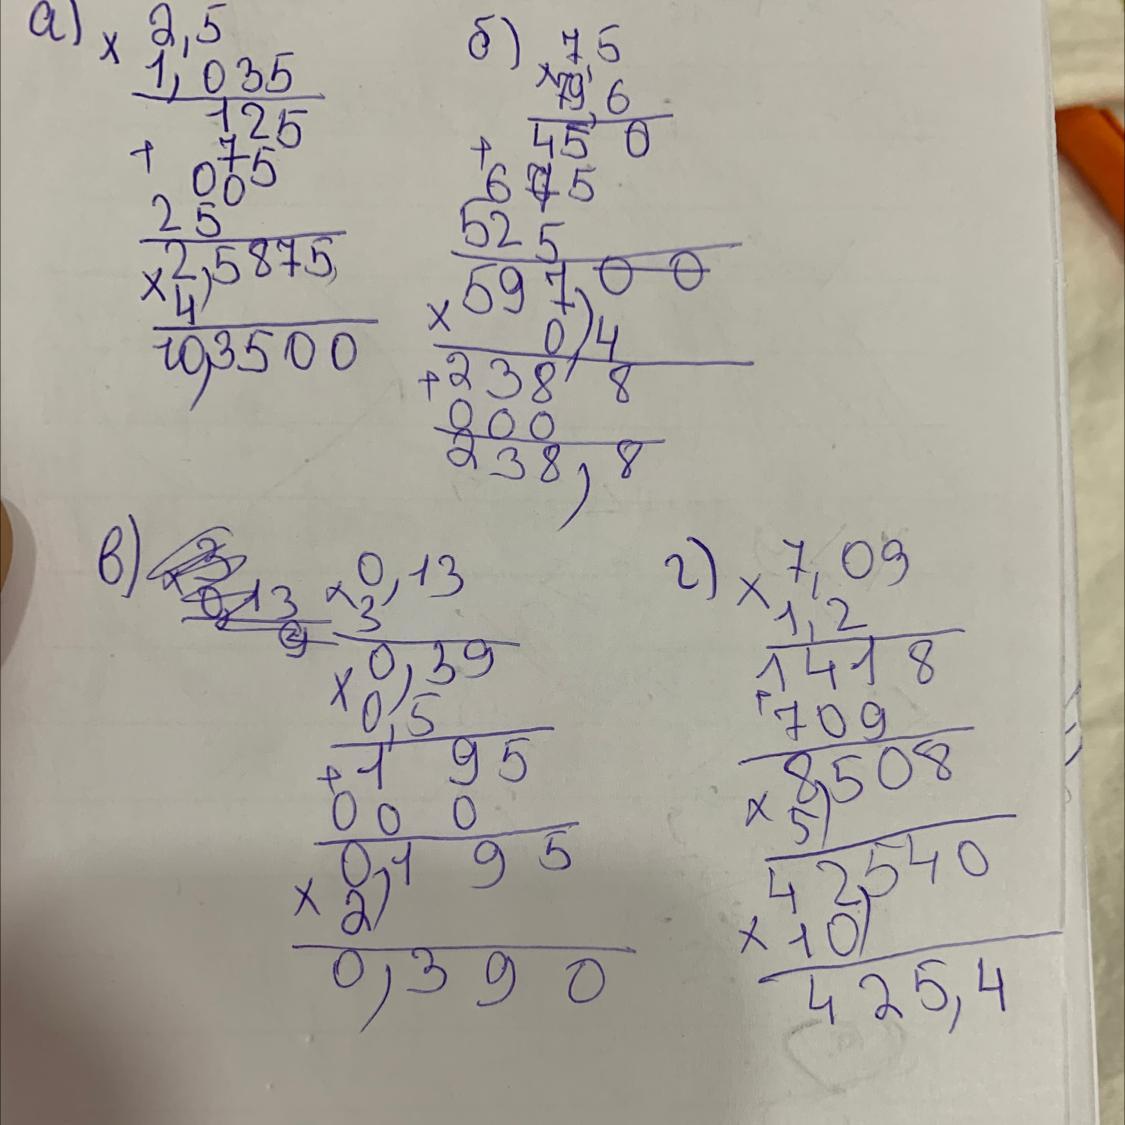 а) × 2,5
1,035
125
+ 75
00
25
× 2,5875
4
10,3500
б) × 7,5
79,6
+ 45 0
6 7 5
525
× 597,00
0,4
+ 238 8
000
238,8
в) × 0,13
3
× 0,39
0,5
+ 1 95
00 0
× 0,1 9 5
2
0,3 9 0
г) × 7,09
1,2
+ 1418
709
× 8,508
5
× 42,540
10
425,4